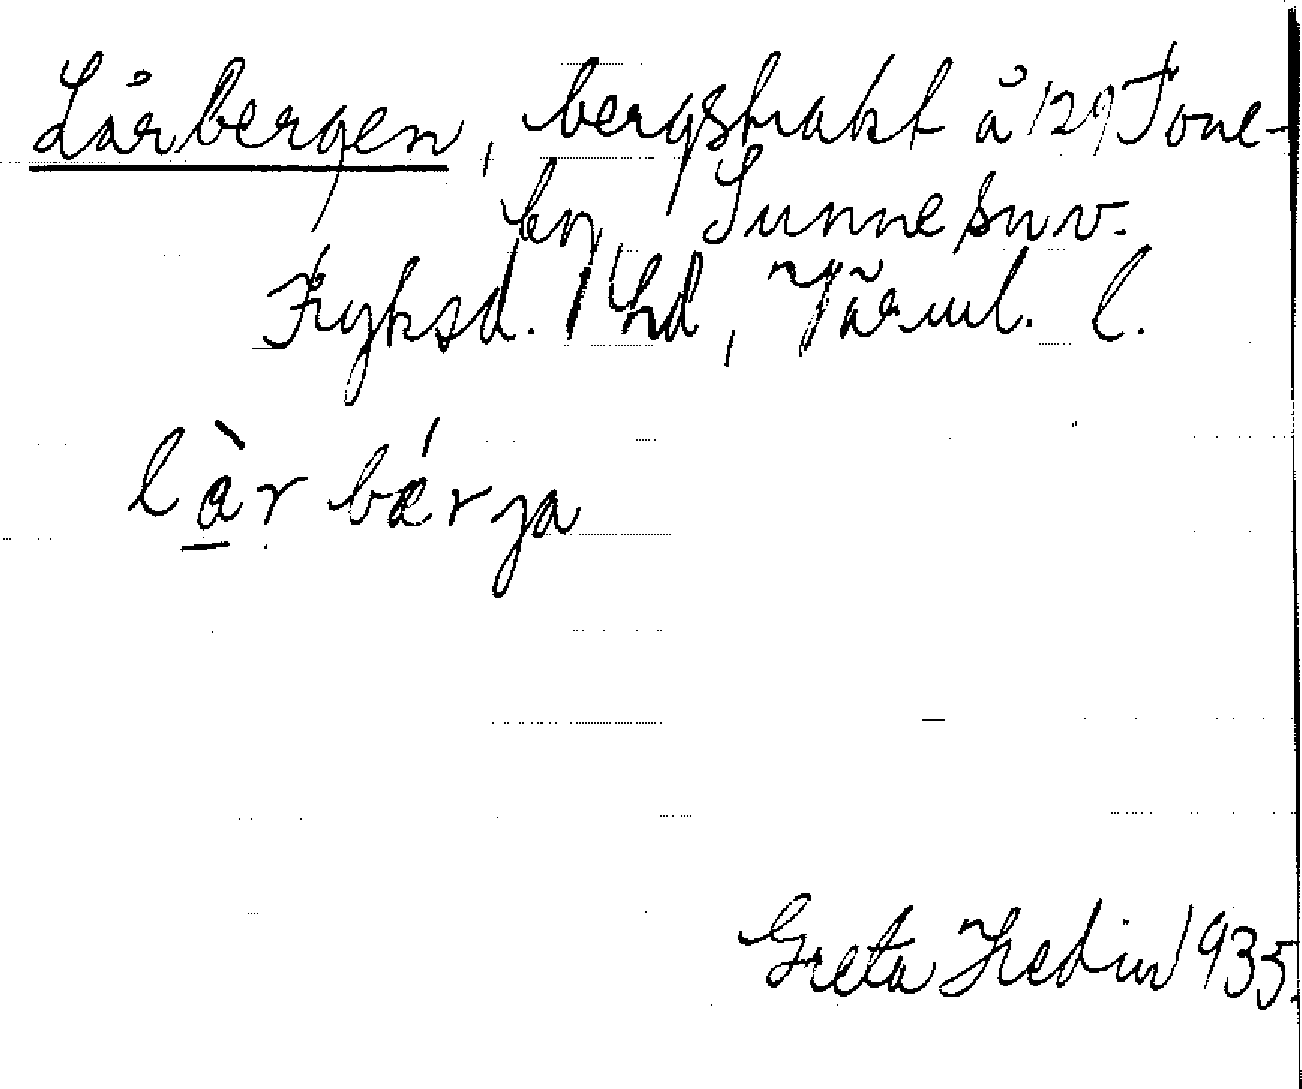 Lårbergen, bergstrakt å 129 Tone-
by, Sunne snv.
Fryksd. hd, Värml. l.
làr bǽrja
Greta Hedin 1935.